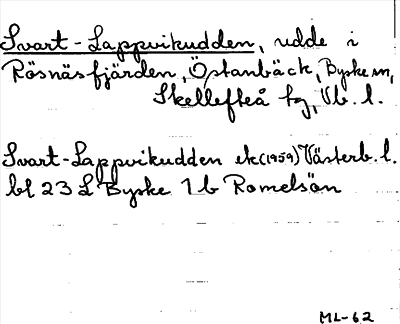 Svart-Lappvikudden, udde i
Rösnäsfjärden, Östanbäck, Byske sn,
Skellefteå tg, Vb. l.
Svart-Lappvikudden ek(1959) Västerb. l.
bl 23 L Byske 1b Romelsön
ML-62